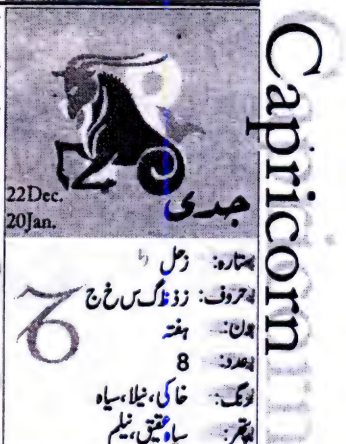 Capricorn
22Dec.
20Jan.
جدی
ستارہ: زحل
حروف: ز ذ گ س خ ج
دن: ہفتہ
عدد: 8
رنگ: خاکی، نیلا، سیاہ
پتھر: سیاہ عقیق، نیلم